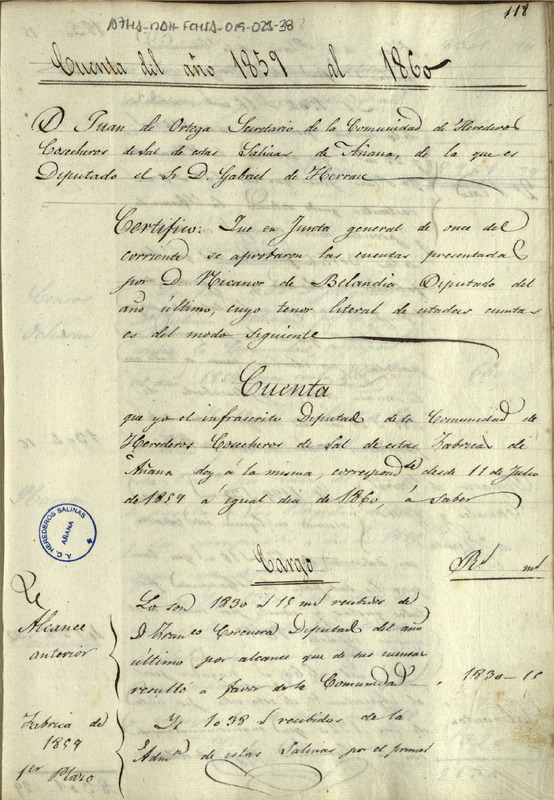 118
ATHA-DAH-FCHSA-019-023-38
Cuenta del año 1859 al 1860
D Juan de Ortega Secretario de la Comunidad de Herederos
Cosecheros de Sal de estas Salinas de Añana, de la que es
Diputado el Sr D. Gabriel de Herran
Certifico: Que en Junta general de once del
corriente se aprobaron las cuentas presentadas
por D Nicanor de Belandia Diputado del
año último, cuyo tenor literal de citadas cuentas
es del modo siguiente
Cuenta
que yo el infrascrito Diputado de la Comunidad de
Herederos Cosecheros de Sal de estas Fabricas de
Añana doy á la misma, correspond.te desde 11 de Julio
de 1859 á igual dia de 1860, á saber
A.C. HEREDEROS SALINAS
AÑANA
Cargo
Rs ms
Alcance
anterior
Lo son 1830 rs 15 ms recibidos de
D Fran.co Corcuera Diputado del año
último por alcance que de sus cuentas
resultó á favor de la Comunidad 1830-15
Fabrica de
1859
1er Plazo
Yt 1038 rs recibidos de la
Adm.on de estas Salinas por el primer